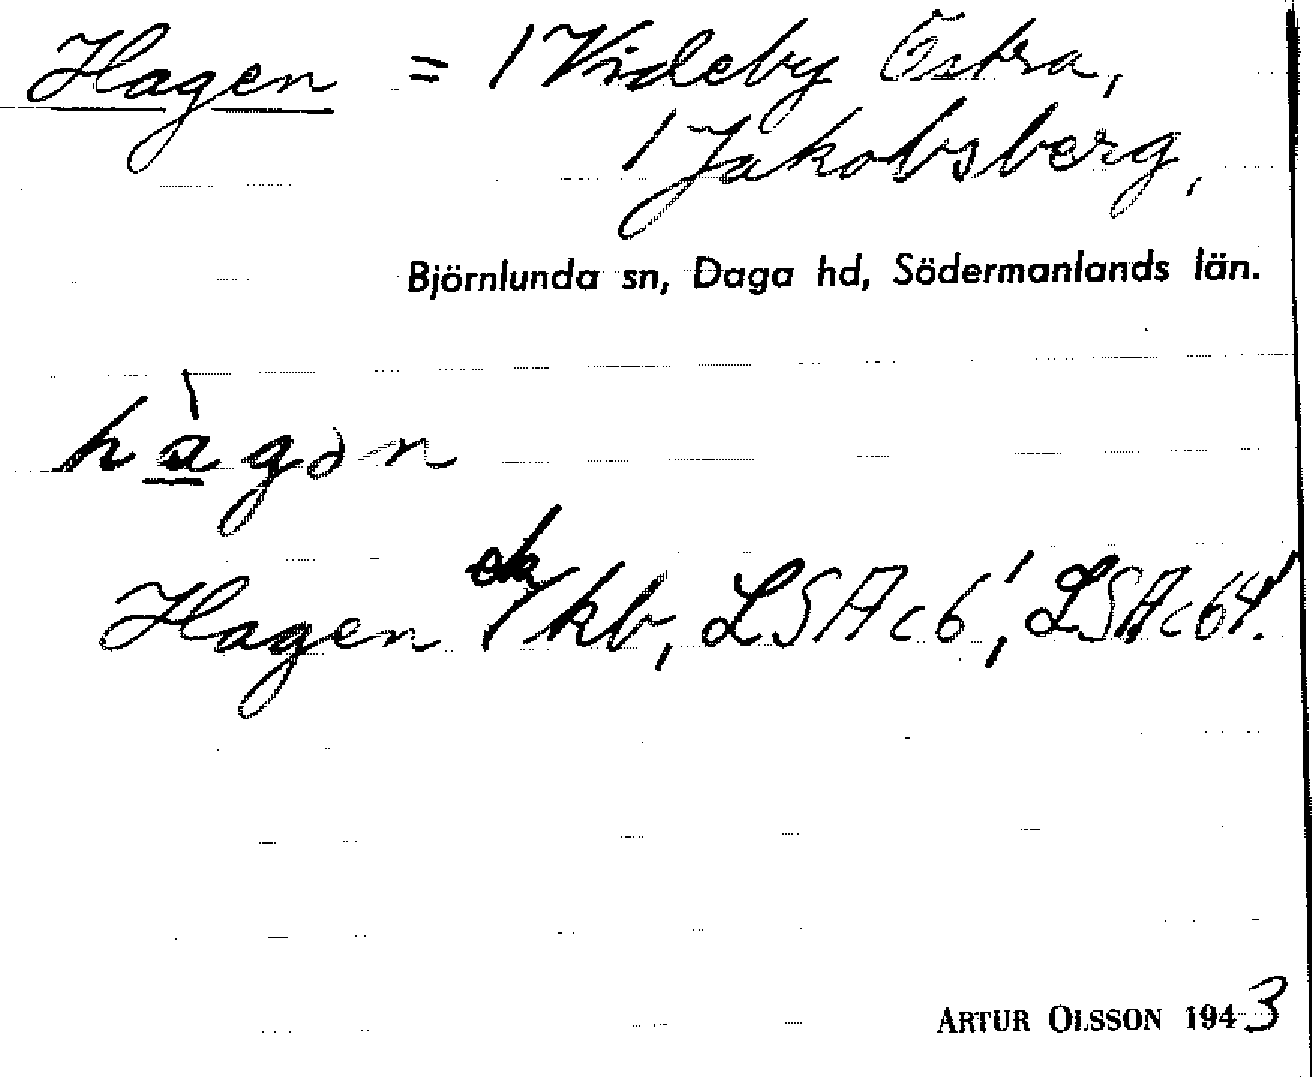 Hagen = / Videby Östra,
/ Jakobsberg,
Björnlunda sn, Daga hd, Södermanlands län.
hàgən
Hagen ek / kb, LSA c6', LSA c64'.
ARTUR OLSSON 1943